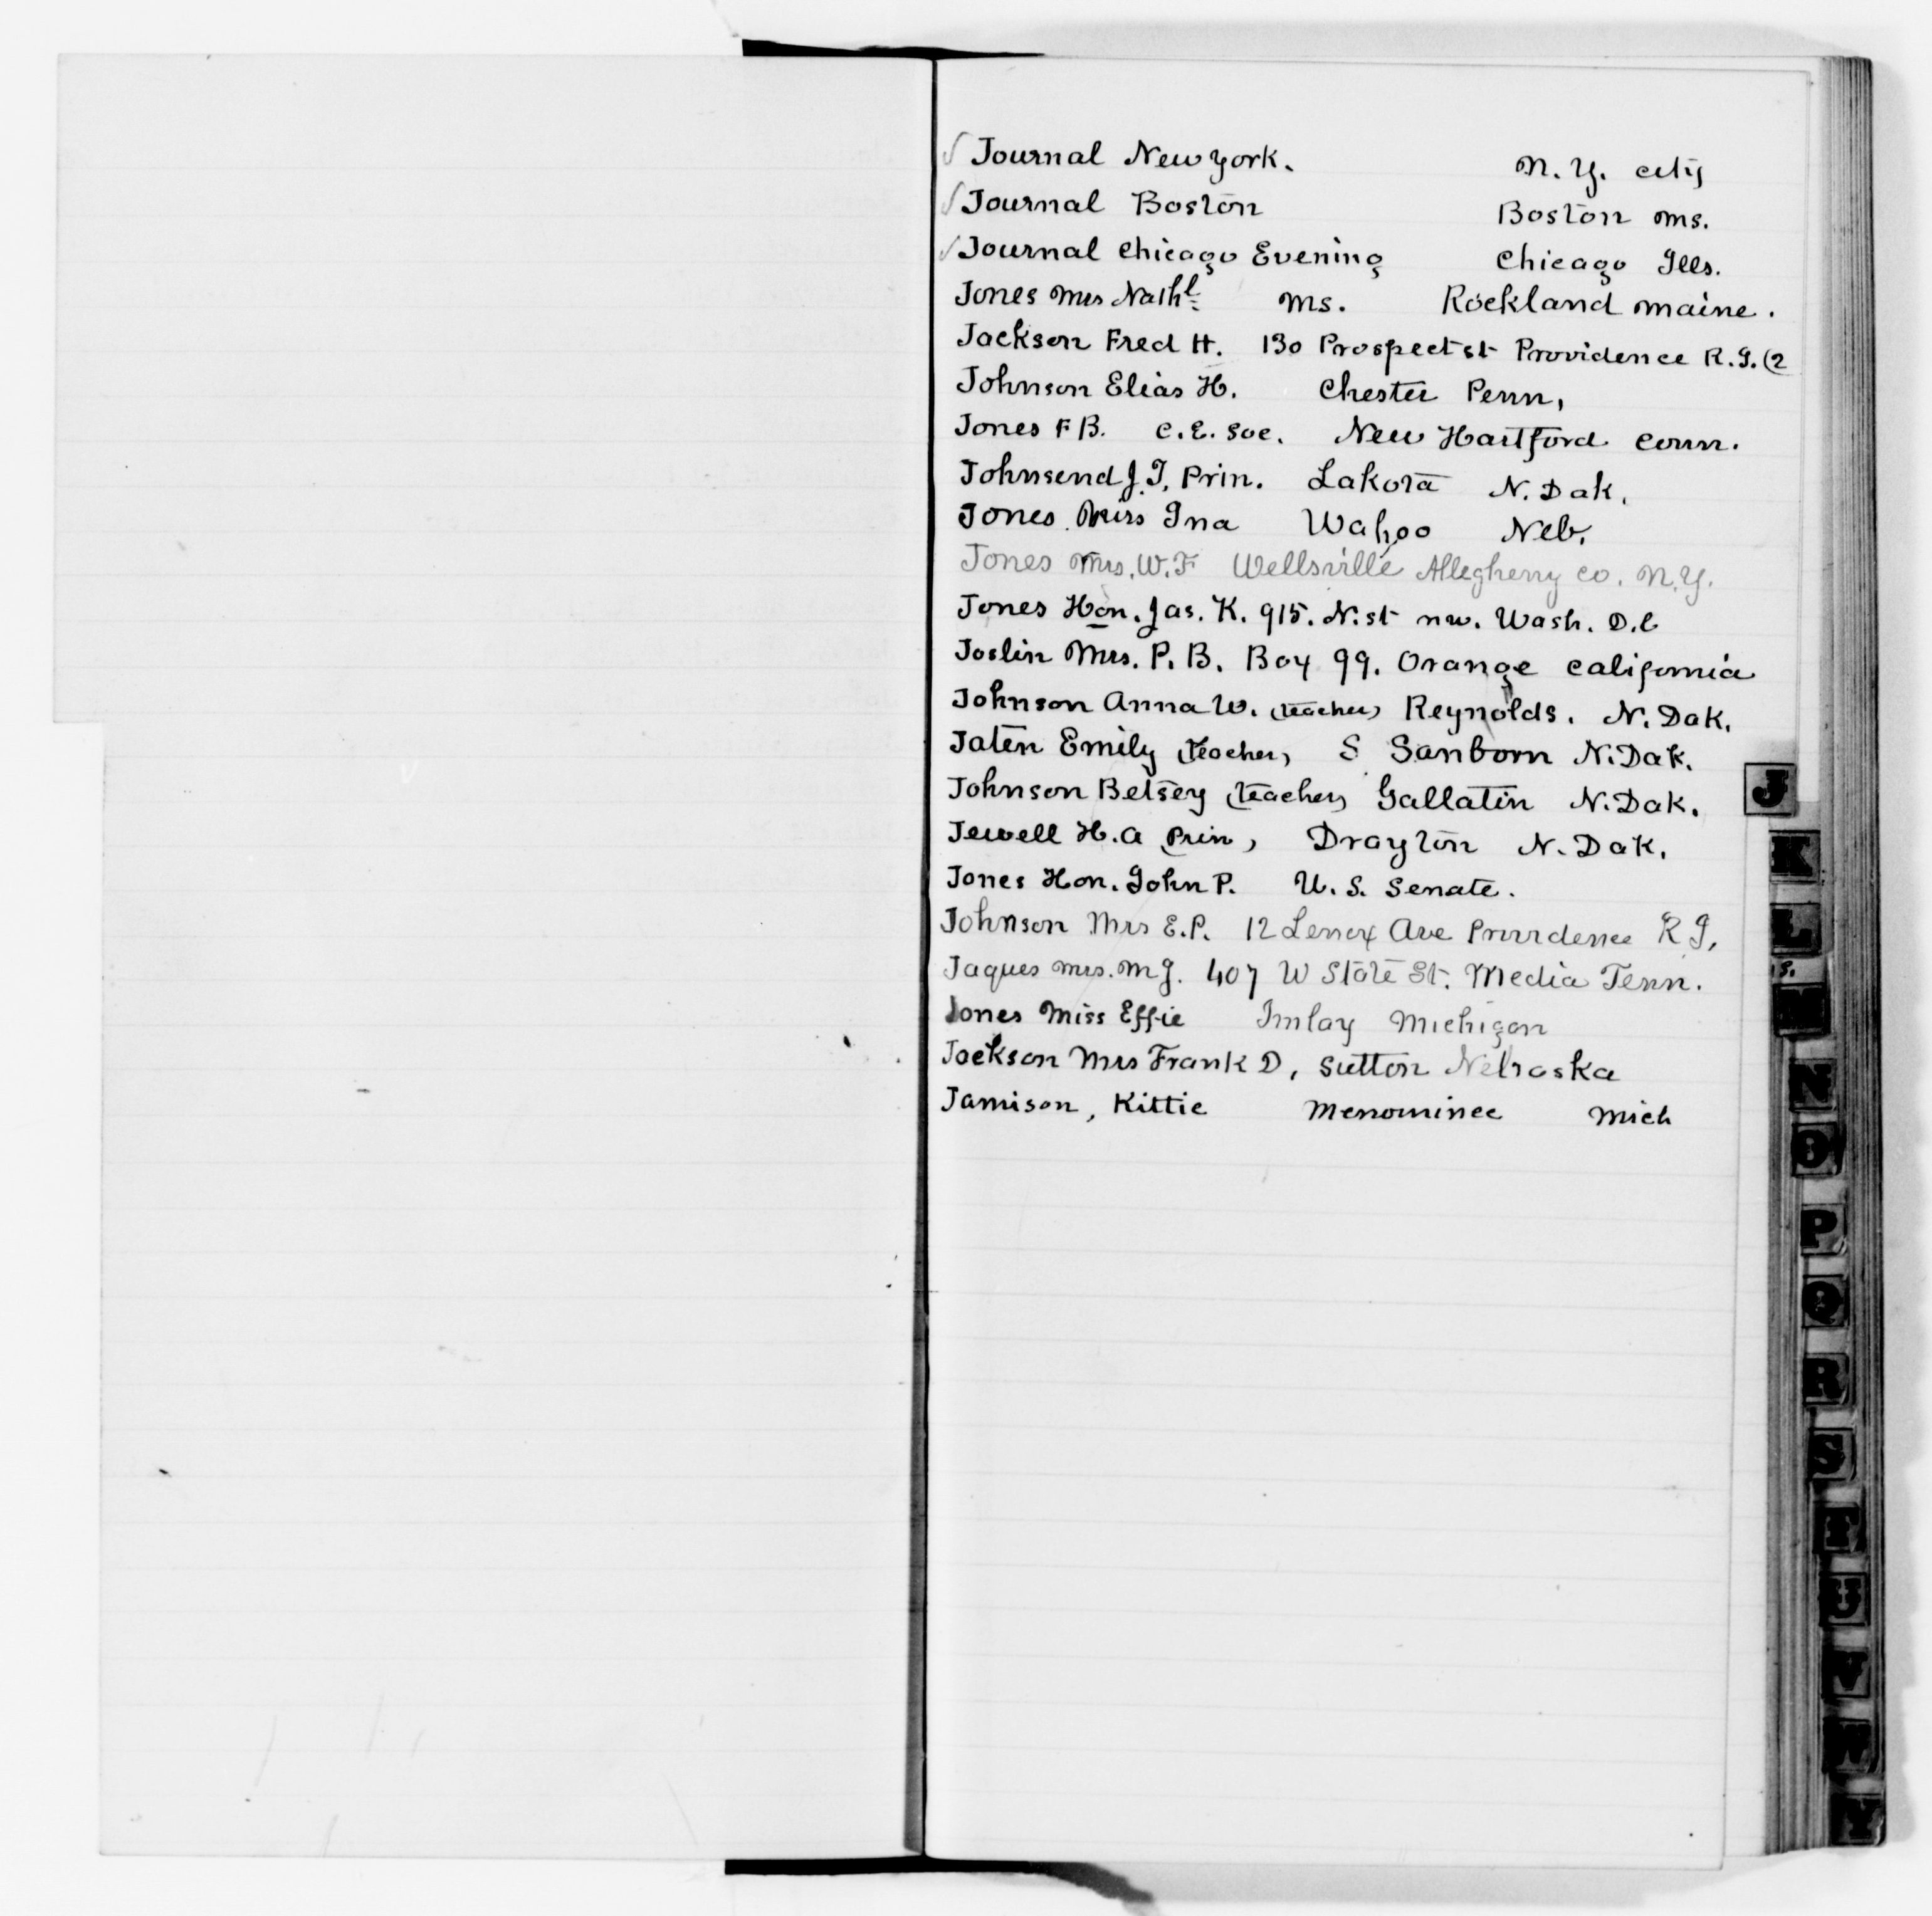 √ Journal New York. N. Y. city
√ Journal Boston Boston Ms.
√ Journal Chicago Evening Chicago Ills.
Jones Mrs Nathl. Ms. Rockland Maine.
Jackson Fred H. 130 Prospect st Providence R.I. (2
Johnson Elias H. Chester Penn,
Jones F B. C. E. Soc. New Hartford Conn.
Johnsend J. T, Prin. Lakota N. Dak,
Jones Miss Ina Wahoo Neb,
Jones Mrs. W. F Wellsville Allegheny Co. N.Y.
Jones Hon. Jas. K. 915. N. st nw. Wash. D.C
Joslin Mrs. P. B. Box 99. Orange California
Johnson Anna W. (teacher) Reynolds. N. Dak.
Jaten Emily (teacher) S Sanborn N. Dak.
Johnson Betsey (teacher) Gallatin N. Dak.
Jewell H. A (Prin) Drayton N. Dak.
Jones Hon. John P. U. S. Senate.
Johnson Mrs E.P. 12 Lenox Ave Providence R I,
Jaques Mrs. M J. 407 W State St. Media Tenn.
Jones Miss Effie Imlay Michigan
Jackson Mrs Frank D, Sutton Nebraska
Jamison, Kittie Menominee Mich
J
K
L
M
N
O
P
Q
R
S
T
U
V
W
Y